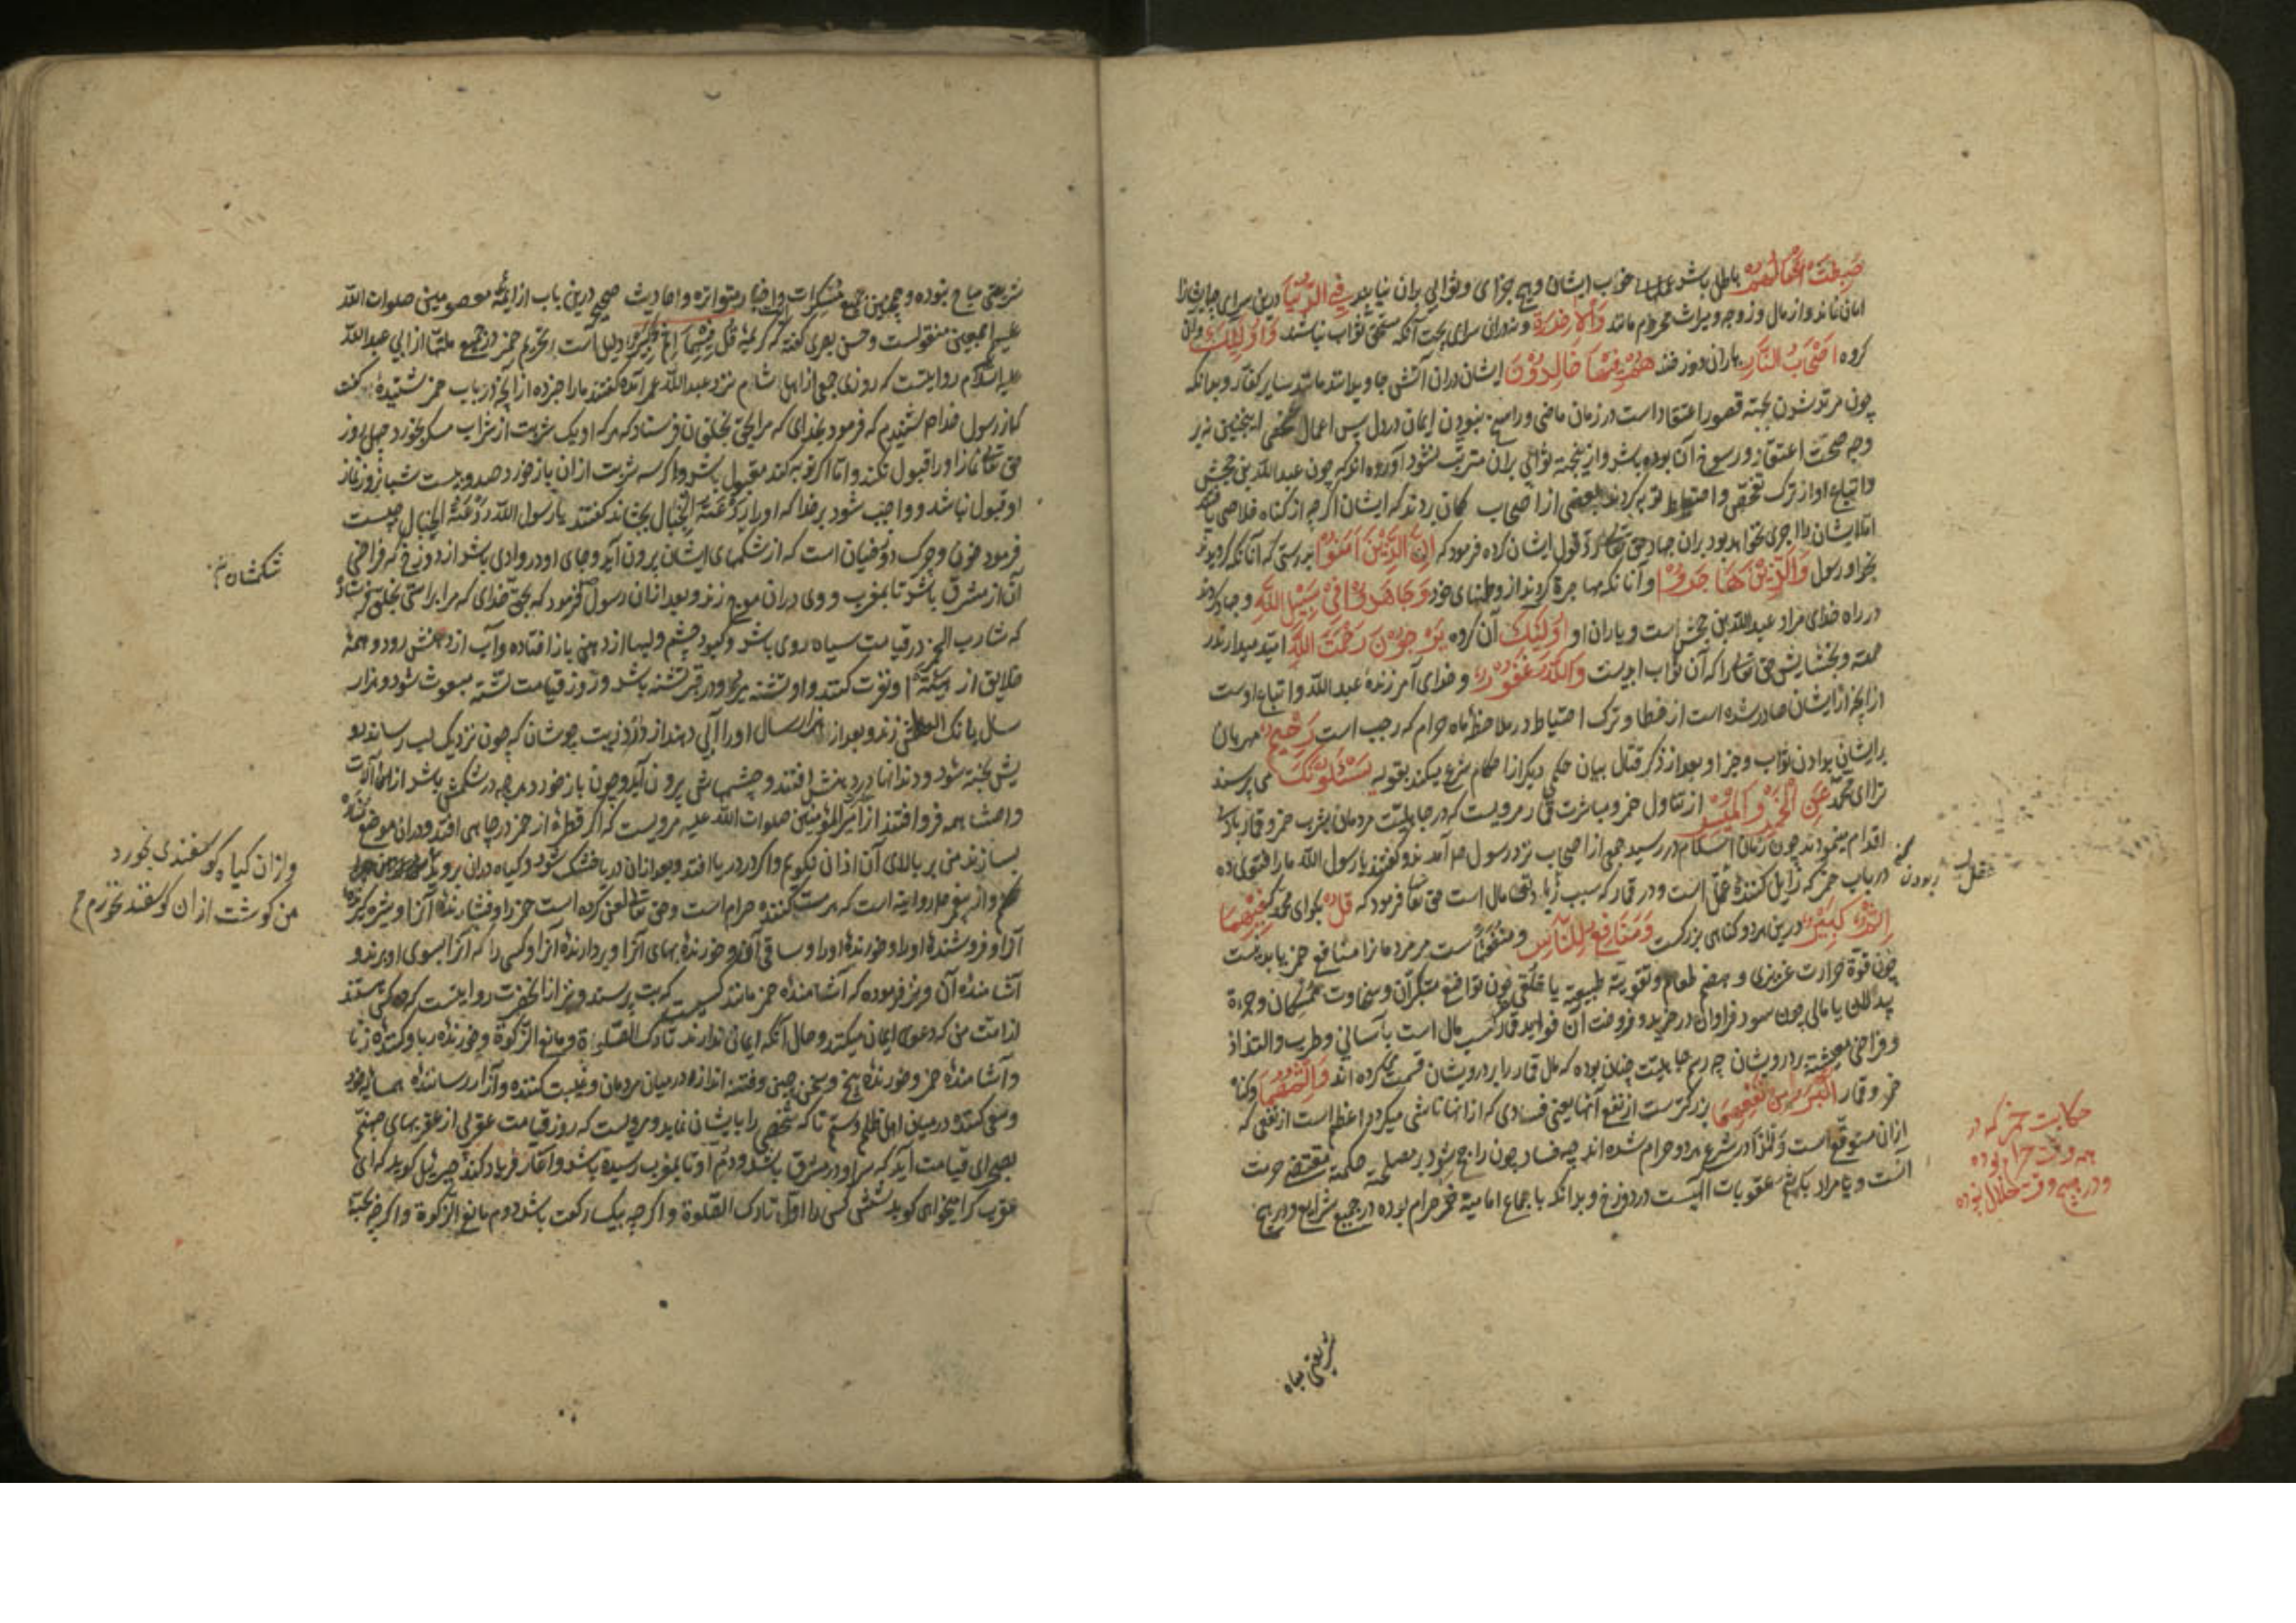 حَبِطَتْ اَعْمَالُهُمْ باطل باشد عملهاء خوب ایشان و هیچ جزای و ثوابی بران نیابند فِي الدُّنْیَا درین سرای چه ایشانرا
امان نماند و از مال و زوجه و میراث محروم مانند وَالْآخِرَةِ و در ان سرای بجهت آنکه مستحق ثواب نباشند وَاُولٰئِكَ و آن
کروه اَصْحَابُ النَّارِ یاران دوزخند هُمْ فِیْهَا خَالِدُوْنَ ایشان دران آتش جاوید مانند مانند سایر کفار و بدانکه
چون مرتد شدن بجهة قصور اعتقاد است در زمان ماضی و راسخ نبودن ایمان در دل پس اعمال شخص اینچنین نه بر
وجه صحت اعتقاد و رسوخ آن بوده باشد و ازینجهة ثوابی بران مترتب نشود آورده اند که چون عبد الله بن جحش
و اتباع او از ترک تفحص و احتیاط توبه کردند بعضی از اصحاب کمان بردند که ایشان اکرچه از کناه خلاصی یافتند
اما ایشان را اجری نخواهد بود بران جهاد حق تعالی رد قول ایشان کرده فرمود که اِنَّ الَّذِیْنَ اٰمَنُوْا بدرستی که آنانکه کرویدند
بخدا و رسول وَالَّذِیْنَ هَاجَرُوْا و آنانکه مهاجرة کردند از وطنهای خود وَجَاهَدُوْا فِیْ سَبِیْلِ اللهِ و جهاد کردند
در راه خدای مراد عبد الله بن جحش است و یاران او اُولٰئِكَ آن کروه یَرْجُوْنَ رَحْمَتَ اللهِ امید میدارند
رحمة و بخشایش حق تعالی را که آن ثواب ابدیست وَاللهُ غَفُوْرٌ و خدای آمرزندهٔ عبد الله و اتباع اوست
از آنچه از ایشان صادر شده است از خطا و ترک احتیاط در ملاحظهٔ ماه حرام که رجب است رَحِیْمٌ مهربان
بر ایشان بدادن ثواب و جزا و بعد از ذکر قتال بیان حکمی دیکر از احکام شرع میکند بقوله یَسْئَلُوْنَكَ می پرسند
ترا ای محمد عَنِ الْخَمْرِ وَالْمَیْسِرِ از تناول خمر و مباشرت قمار مرویست که در جاهلیت مردمان بشرب خمر و قمار بازی
اقدام مینمودند چون زمان اسلام در رسید جمعی از اصحاب نزد رسول ص آمدند و کفتند یا رسول الله ما را فتوی ده
در باب خمر که زایل کنندهٔ عقل است و در قمار که سبب زیادتی مال است حق تعا فرمود که قُلْ بکو ای محمد فِیْهِمَا
اِثْمٌ کَبِیْرٌ درین هر دو کناهی بزرکست وَمَنَافِعُ لِلنَّاسِ و منفعتهاست مر مردمانرا منافع خمر یا بدنیست
چون قوة حرارت غریزی و هضم طعام و تقویة طبیعیة یا خلقی چون تواضع متکبران و سخاوت ممسکان و جرءة
بد دلان یا مالی چون سود فراوان در خرید و فروخت آن فواید قمار کسب مال است بآسانی و طرب و التذاذ
و فراخی معیشة بر درویشان چه رسم جاهلیت چنان بوده که مال قمار را بر درویشان قسمت میکرده اند وَاِثْمُهُمَا و کناه
خمر و قمار اَکْبَرُ مِنْ نَفْعِهِمَا بزرکترست از نفع آنها یعنی فسادی که از انها ناشی میکردد اعظم است از نفعی که
ازان متوقع است و لهذا در شرع هر دو حرام شده اند چه فساد چون راجح شود بر مصلحة حکمة مقتضی حرمت
انست و یا مراد باثم عقوبات الهیست در دوزخ و بدانکه باجماع امامیة خمر حرام بوده در جمیع شرایع و در هیچ
عقل
بودن
حکایت خمر که در
همه وقت حرام بوده
و در هیچ وقت حلال نبوده
شریعتی مباح
شریعتی مباح نبوده و همچنین جمیع مسکرات و اخبار متواتره و احادیث صحیح درین باب از ایمهٔ معصومین صلوات الله
علیهم اجمعین منقولست و حسن بصری کفته که کریمهٔ قل فیهما اثم کبیر دلیل است بر تحریم خمر در جمیع ملتها از ابی عبد الله
علیه السلام روایتست که روزی جمعی از اهل شام نزد عبد الله عمر آمده کفتند ما را خبر ده از آنچه در باب خمر شنیدهٔ کفت
که از رسول خدا ص شنیدم که فرمود بخدای که مرا بحق بخلقان فرستاد که هر که او یک شربت از شراب مسکر بخورد چهل روز
حق تعالی نماز او را قبول نکند و اما اکر توبه کند مقبول باشد و اکر سه شربت ازان باز خورد صد و بیست شبانروز نماز
او قبول نباشد و واجب شود بر خدا که او را از رَدْغَةُ الْخَبَال بچشاند کفتند یا رسول الله رَدْغَةُ الْخَبَال چیست
فرمود خون و چرک دوزخیان است که از شکمهای ایشان برون آید و جای او در وادی باشد از دوزخ که فراخی
آن از مشرق باشد تا بمغرب و وی دران موج زند و بعد ازان رسول ص فرمود که بحق خدای که مرا براستی بخلق فرستاد
که شارب الخمر در قیامت سیاه روی باشد و کبود چشم و لبها از دهن باز افتاده و آب از دهنش رود و همهٔ
خلایق از او نفرت کنند و او تشنه میرد و در قبر تشنه باشد و روز قیامت تشنه مبعوث شود و هزار
سال بانک العطش زند و بعد از هزار سال او را آبی دهند از دُرْدِ زیت جوشان که چون نزدیک لب رساند رو
یش پخته شود و دندانها در دهنش افتند و چشمهاش برون آید و چون باز خورد هر چه در شکمش باشد از امعا و آلات
و احشا همه فرو افتند از امیر المؤمنین صلوات الله علیه مرویست که اکر قطرهٔ از خمر در چاهی افتد و دران موضع مناره
بسازند من بر بالای آن اذان نکویم و اکر در دریا افتد و بعد ازان دریا خشک شود و کیاه دران بروید
و از پیغمبر ص روایة است که هر مست کننده حرام است و حق تعالی لعن کرده است خمر را و فشارندهٔ آنرا و شیره کیرندهٔ
آنرا و فروشندهٔ او را و خورندهٔ او را و ساقی آنرا و خورندهٔ بهای آنرا و بردارندهٔ آنرا و کسی را که آنرا بسوی او برند و
آشامندهٔ آن و نیز فرموده که آشامندهٔ خمر مانند کسیست که بت پرستد و نیز از انحضرت روایتست که ده کس هستند
از امت من که دعوی ایمان میکنند و حال آنکه ایمانی ندارند تارک الصلوة و مانع الزکوة و خورندهٔ ربا و کنندهٔ زنا
و آشامندهٔ خمر و خورندهٔ بنج و سخن چینی و فتنه اندازنده در میان مردمان و غیبت کننده و آزار رسانندهٔ همسایه خود
و سعی کننده در میان اهل ظلم و ستم تا که شخصی را بایشان نماید و مرویست که روز قیامت عقربی از عقربهای جهنم
بصحرای قیامت آید که سر او در مشرق باشد و دم او تا بمغرب رسیده باشد و آغاز فریاد کند جبرئیل کوید که ای
عقرب کرا میخواهی کوید شش کس را اول تارک الصلوة و اکرچه بیک رکعت باشد دوم مانع الزکوة و اکرچه بحبهٔ
شکمشان
و ازان کیاه کوسفندی بخورد
من کوشت ازان کوسفند نخورم